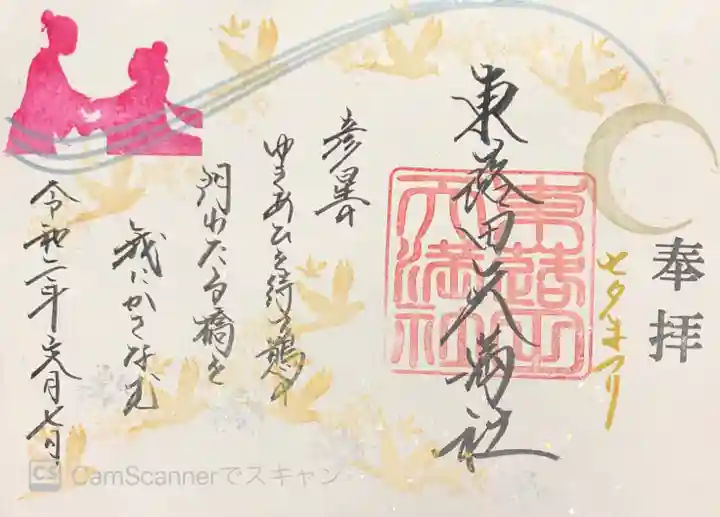 奉拝
七夕まつり
東蕗田天満社
東蕗田天満社
彦星の
ゆきあひを待つ鵲の
門わたる橋を
我にかさなむ
令和二年文月七日
CS CamScannerでスキャン